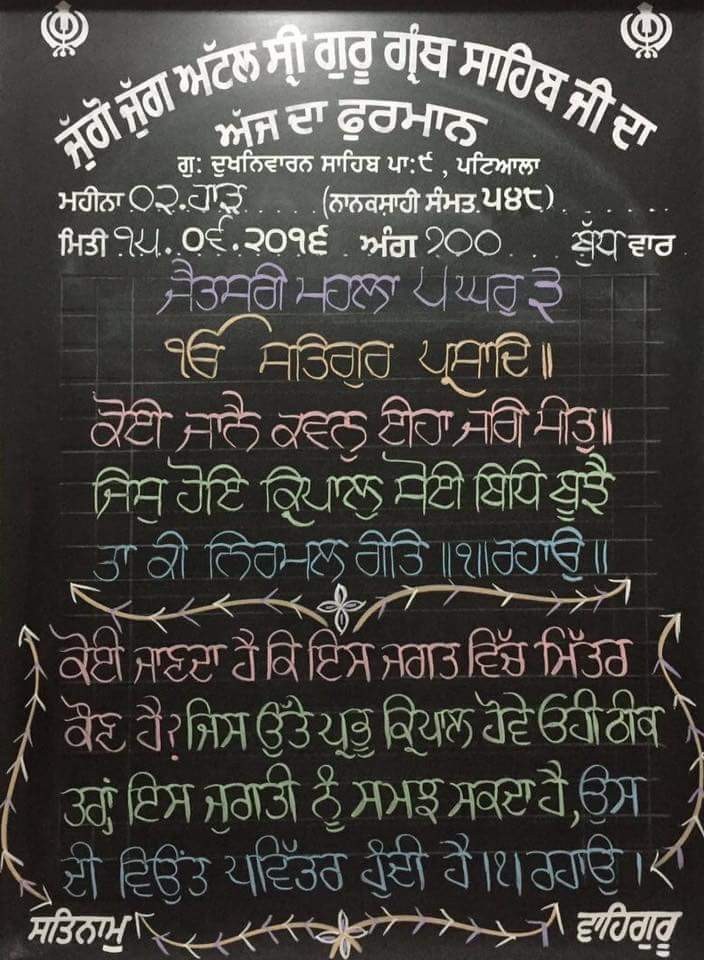 ਜੁੱਗੋ ਜੁੱਗ ਅਟੱਲ ਸ੍ਰੀ ਗੁਰੂ ਗ੍ਰੰਥ ਸਾਹਿਬ ਜੀ ਦਾ
ਅੱਜ ਦਾ ਫੁਰਮਾਨ
ਗੁ: ਦੁਖਨਿਵਾਰਨ ਸਾਹਿਬ ਪਾ:੯, ਪਟਿਆਲਾ
ਮਹੀਨਾ ੦੨.ਹਾੜ (ਨਾਨਕਸ਼ਾਹੀ ਸੰਮਤ ੫੪੮)
ਮਿਤੀ ੧੫.੦੬.੨੦੧੬ ਅੰਗ ੭੦੦ ਬੁੱਧ ਵਾਰ
ਜੈਤਸਰੀ ਮਹਲਾ ੫ ਘਰੁ ੩
ੴ ਸਤਿਗੁਰ ਪ੍ਰਸਾਦਿ॥
ਕੋਈ ਜਾਨੈ ਕਵਨੁ ਈਹਾ ਜਗਿ ਮੀਤੁ॥
ਜਿਸੁ ਹੋਇ ਕ੍ਰਿਪਾਲੁ ਸੋਈ ਬਿਧਿ ਬੂਝੈ
ਤਾ ਕੀ ਨਿਰਮਲ ਰੀਤਿ ॥੧॥ ਰਹਾਉ ॥
ਕੋਈ ਜਾਣਦਾ ਹੈ ਕਿ ਇਸ ਜਗਤ ਵਿੱਚ ਮਿੱਤਰ
ਕੌਣ ਹੈ? ਜਿਸ ਉੱਤੇ ਪ੍ਰਭੂ ਕ੍ਰਿਪਾਲ ਹੋਵੇ ਓਹੀ ਠੀਕ
ਤਰ੍ਹਾਂ ਇਸ ਜੁਗਤੀ ਨੂੰ ਸਮਝ ਸਕਦਾ ਹੈ, ਉਸ
ਦੀ ਵਿਉਂਤ ਪਵਿੱਤਰ ਹੁੰਦੀ ਹੈ।੧। ਰਹਾਉ।
ਸਤਿਨਾਮੁ ਵਾਹਿਗੁਰੂ